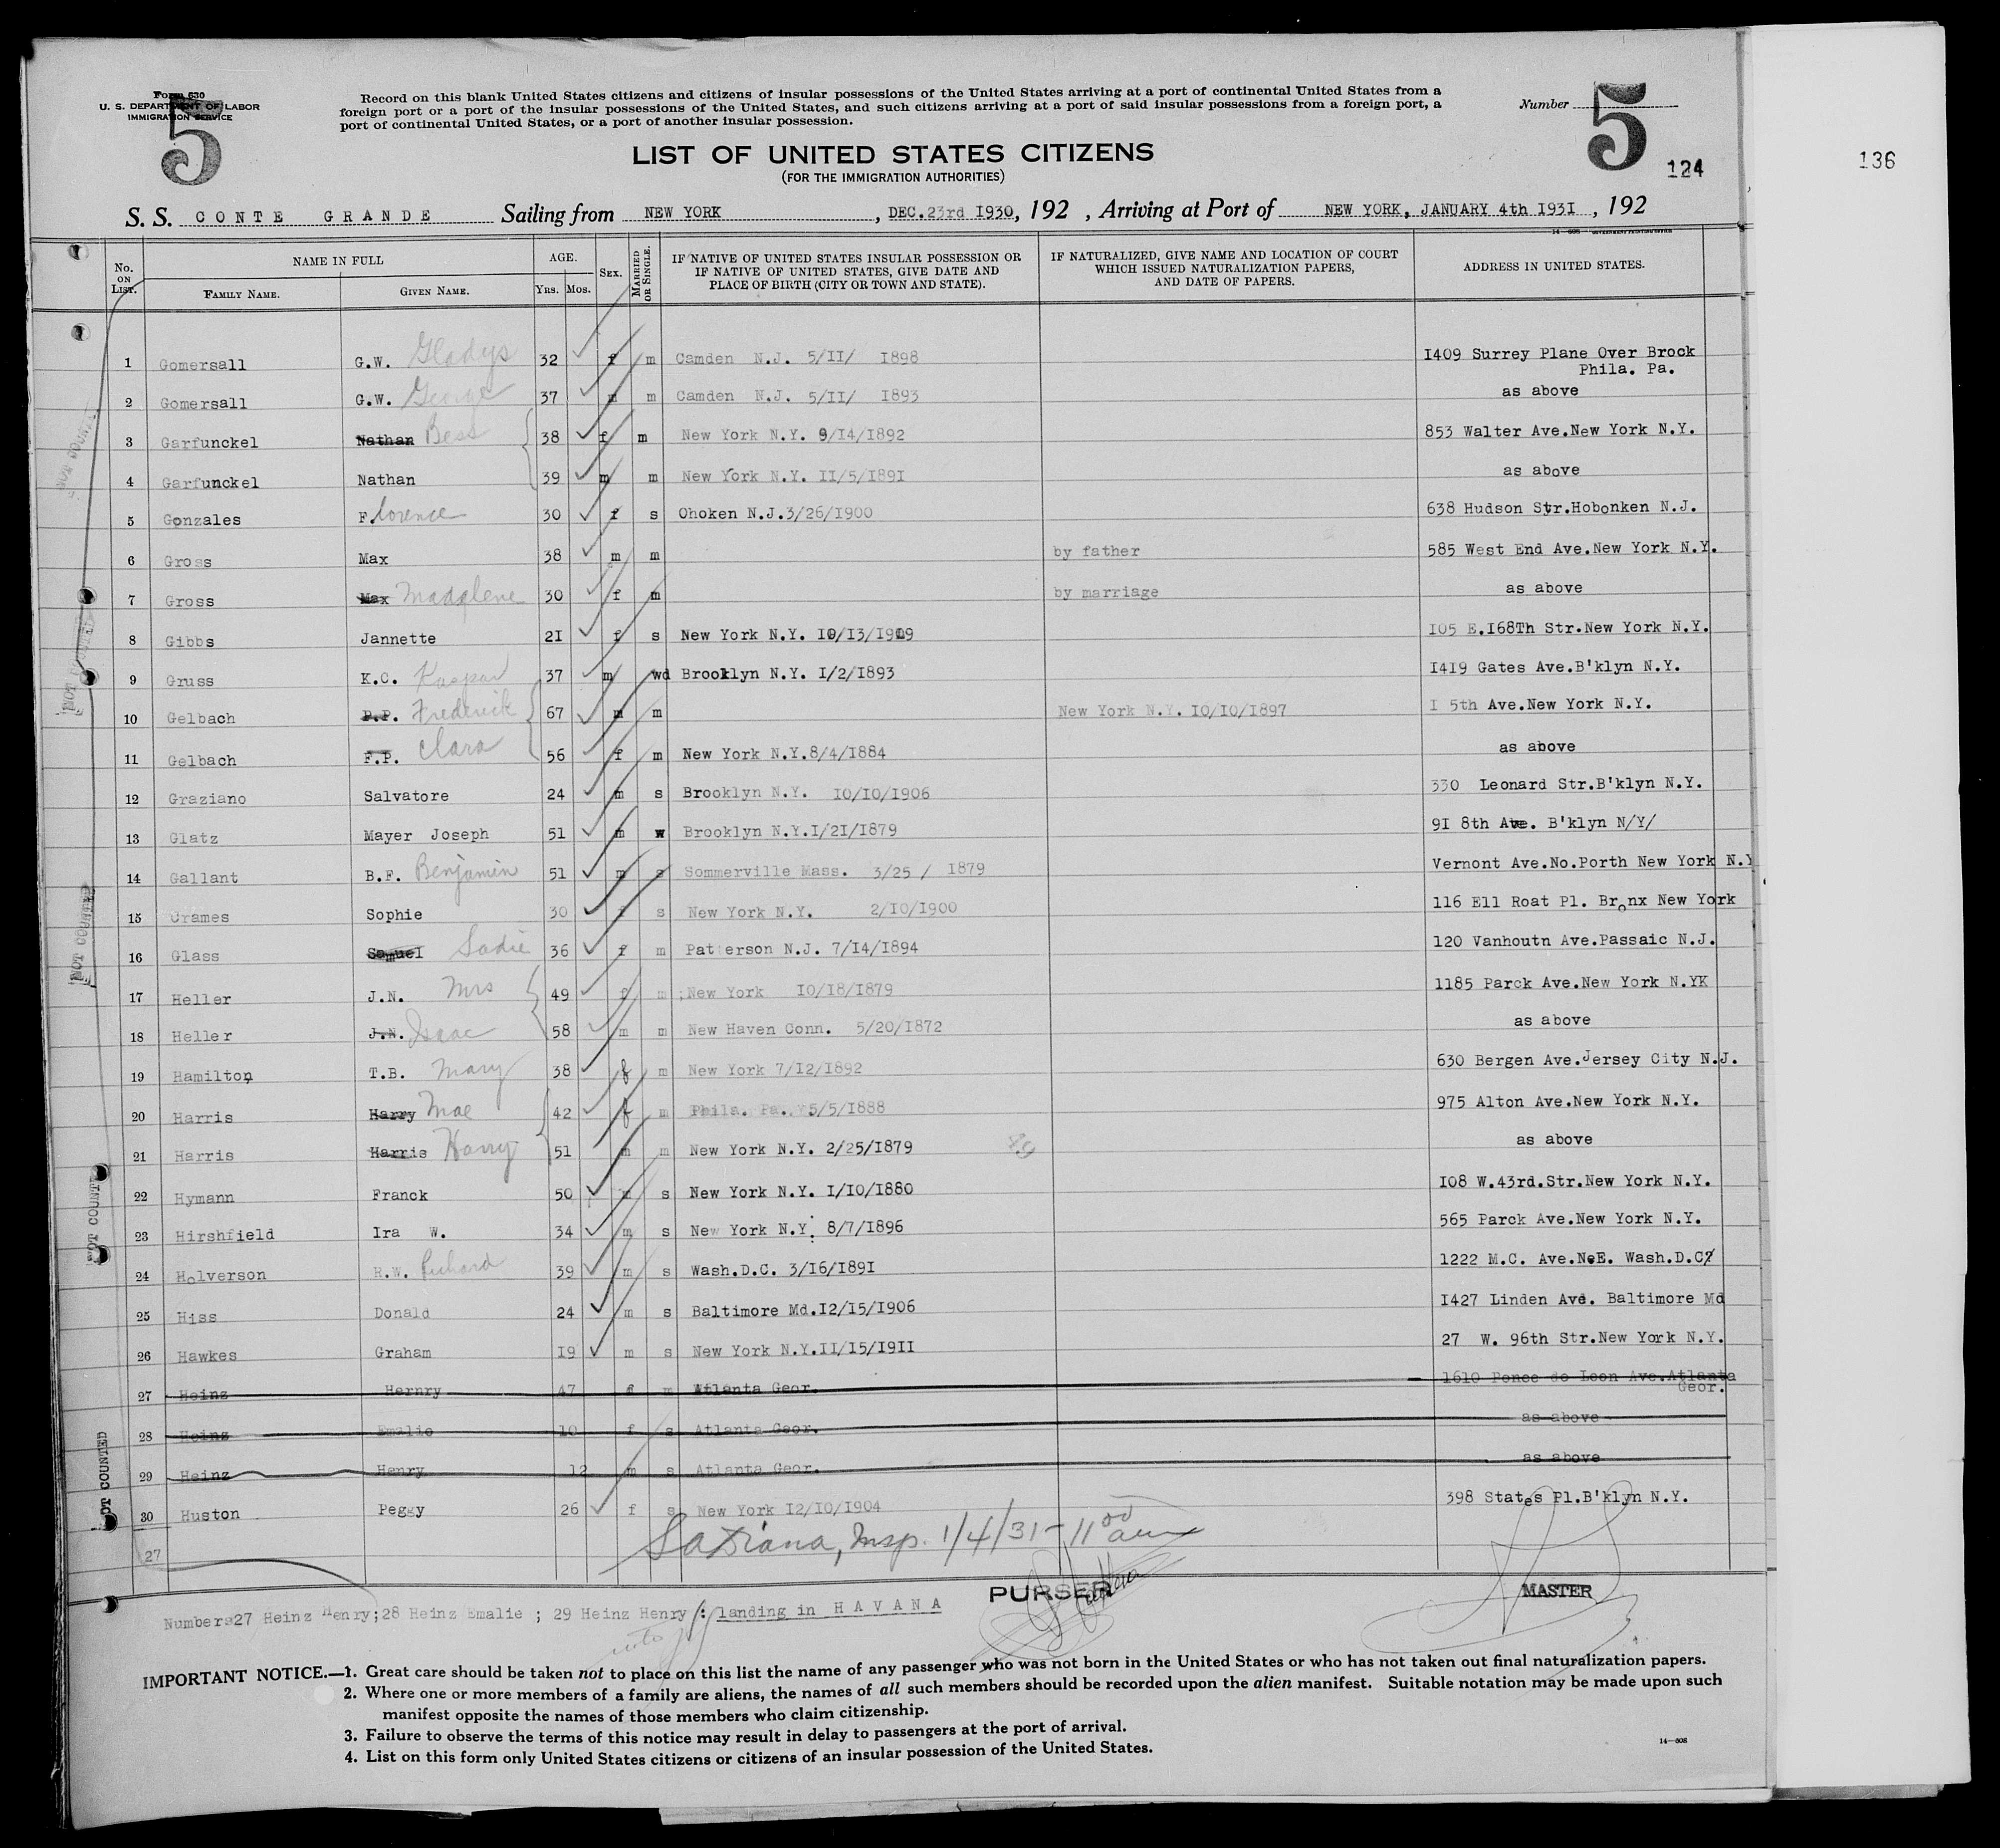 Form 630
U. S. DEPARTMENT OF LABOR
IMMIGRATION SERVICE
5
Record on this blank United States citizens and citizens of insular possessions of the United States arriving at a port of continental United States from a
foreign port or a port of the insular possessions of the United States, and such citizens arriving at a port of said insular possessions from a foreign port, a
port of continental United States, or a port of another insular possession.
Number 5
124
136
LIST OF UNITED STATES CITIZENS
(FOR THE IMMIGRATION AUTHORITIES)
S. S. CONTE GRANDE Sailing from NEW YORK, DEC.23rd I930, 192 , Arriving at Port of NEW YORK, JANUARY 4th I93I , 192
No. ON LIST. NAME IN FULL FAMILY NAME. GIVEN NAME. AGE. YRS. MOS. SEX. MARRIED OR SINGLE. IF NATIVE OF UNITED STATES INSULAR POSSESSION OR IF NATIVE OF UNITED STATES, GIVE DATE AND PLACE OF BIRTH (CITY OR TOWN AND STATE). IF NATURALIZED, GIVE NAME AND LOCATION OF COURT WHICH ISSUED NATURALIZATION PAPERS, AND DATE OF PAPERS. ADDRESS IN UNITED STATES.
1 Gomersall G.W. Gladys 32 f m Camden N.J. 5/II/ I898 I409 Surrey Plane Over Brock
Phila. Pa.
2 Gomersall G.W. George 37 m m Camden N.J. 5/II/ I893 as above
3 Garfunckel Nathan Bess 38 f m New York N.Y. 9/I4/I892 853 Walter Ave.New York N.Y.
4 Garfunckel Nathan 39 m m New York N.Y. II/5/I89I as above
5 Gonzales F.lorence 30 f s Ohoken N.J.3/26/I900 638 Hudson Str.Hobonken N.J.
6 Gross Max 38 m m by father 585 West End Ave.New York N.Y.
7 Gross Max Madalene 30 f m by marriage as above
8 Gibbs Jannette 2I f s New York N.Y. I0/I3/I909 I05 E.I68Th Str.New York N.Y.
9 Gruss K.C. Kaspar 37 m wd Brooklyn N.Y. I/2/I893 I4I9 Gates Ave.B'klyn N.Y.
10 Gelbach P.P. Frederick 67 m m New York N.Y. I0/I0/I897 I 5th Ave.New York N.Y.
11 Gelbach F.P. Clara 56 f m New York N.Y.8/4/I884 as above
12 Graziano Salvatore 24 m s Brooklyn N.Y. I0/I0/I906 330 Leonard Str.B'klyn N.Y.
13 Glatz Mayer Joseph 51 m w Brooklyn N.Y.I/2I/I879 9I 8th Ave. B'klyn N/Y/
14 Gallant B.F. Benjamin 51 m s Sommerville Mass. 3/25 / I879 Vermont Ave.No.Porth New York N.Y
15 Crames Sophie 30 f s New York N.Y. 2/I0/I900 116 Ell Roat Pl. Bronx New York
16 Glass Samuel Sadie 36 f m Patterson N.J. 7/I4/I894 120 Vanhoutn Ave.Passaic N.J.
17 Heller J.N. Mrs 49 f m New York I0/I8/I879 1185 Parck Ave.New York N.YK
18 Heller J.N. Isaac 58 m m New Haven Conn. 5/20/I872 as above
19 Hamilton T.B. Mary 38 f m New York 7/I2/I892 630 Bergen Ave.Jersey City N.J.
20 Harris Harry Mae 42 f m Phila. Pa. 5/5/I888 975 Alton Ave.New York N.Y.
21 Harris Harris Harry 51 m m New York N.Y. 2/25/I879 49 as above
22 Hymann Franck 50 m s New York N.Y. I/I0/I880 I08 W.43rd.Str.New York N.Y.
23 Hirshfield Ira W. 34 m s New York N.Y. 8/7/I896 565 Parck Ave.New York N.Y.
24 Holverson R.W. Richard 39 m s Wash.D.C. 3/I6/I89I 1222 M.C. Ave.NeE. Wash.D.C
25 Hiss Donald 24 m s Baltimore Md.I2/I5/I906 I427 Linden Ave. Baltimore Md
26 Hawkes Graham I9 m s New York N.Y.II/I5/I9II 27 W. 96th Str.New York N.Y.
27 Heinz Hernry 47 f m Atlanta Geor. 1610 Ponce de Leon Ave.Atlanta
Geor.
28 Heinz Emalie 10 f s Atlanta Geor. as above
29 Heinz Henry 12 m s Atlanta Geor. as above
30 Huston Peggy 26 f s New York I2/I0/I904 398 States Pl.B'klyn N.Y.
27
Insp. 1/4/31 - 11 00 am
NOT COUNTED
NOT COUNTED
NOT COUNTED
NOT COUNTED
NOT COUNTED
PURSER
MASTER
Numbers27 Heinz Henry;28 Heinz Emalie ; 29 Heinz Henry : landing in HAVANA
IMPORTANT NOTICE.—1. Great care should be taken not to place on this list the name of any passenger who was not born in the United States or who has not taken out final naturalization papers.
2. Where one or more members of a family are aliens, the names of all such members should be recorded upon the alien manifest. Suitable notation may be made upon such
manifest opposite the names of those members who claim citizenship.
3. Failure to observe the terms of this notice may result in delay to passengers at the port of arrival.
4. List on this form only United States citizens or citizens of an insular possession of the United States.
14—608